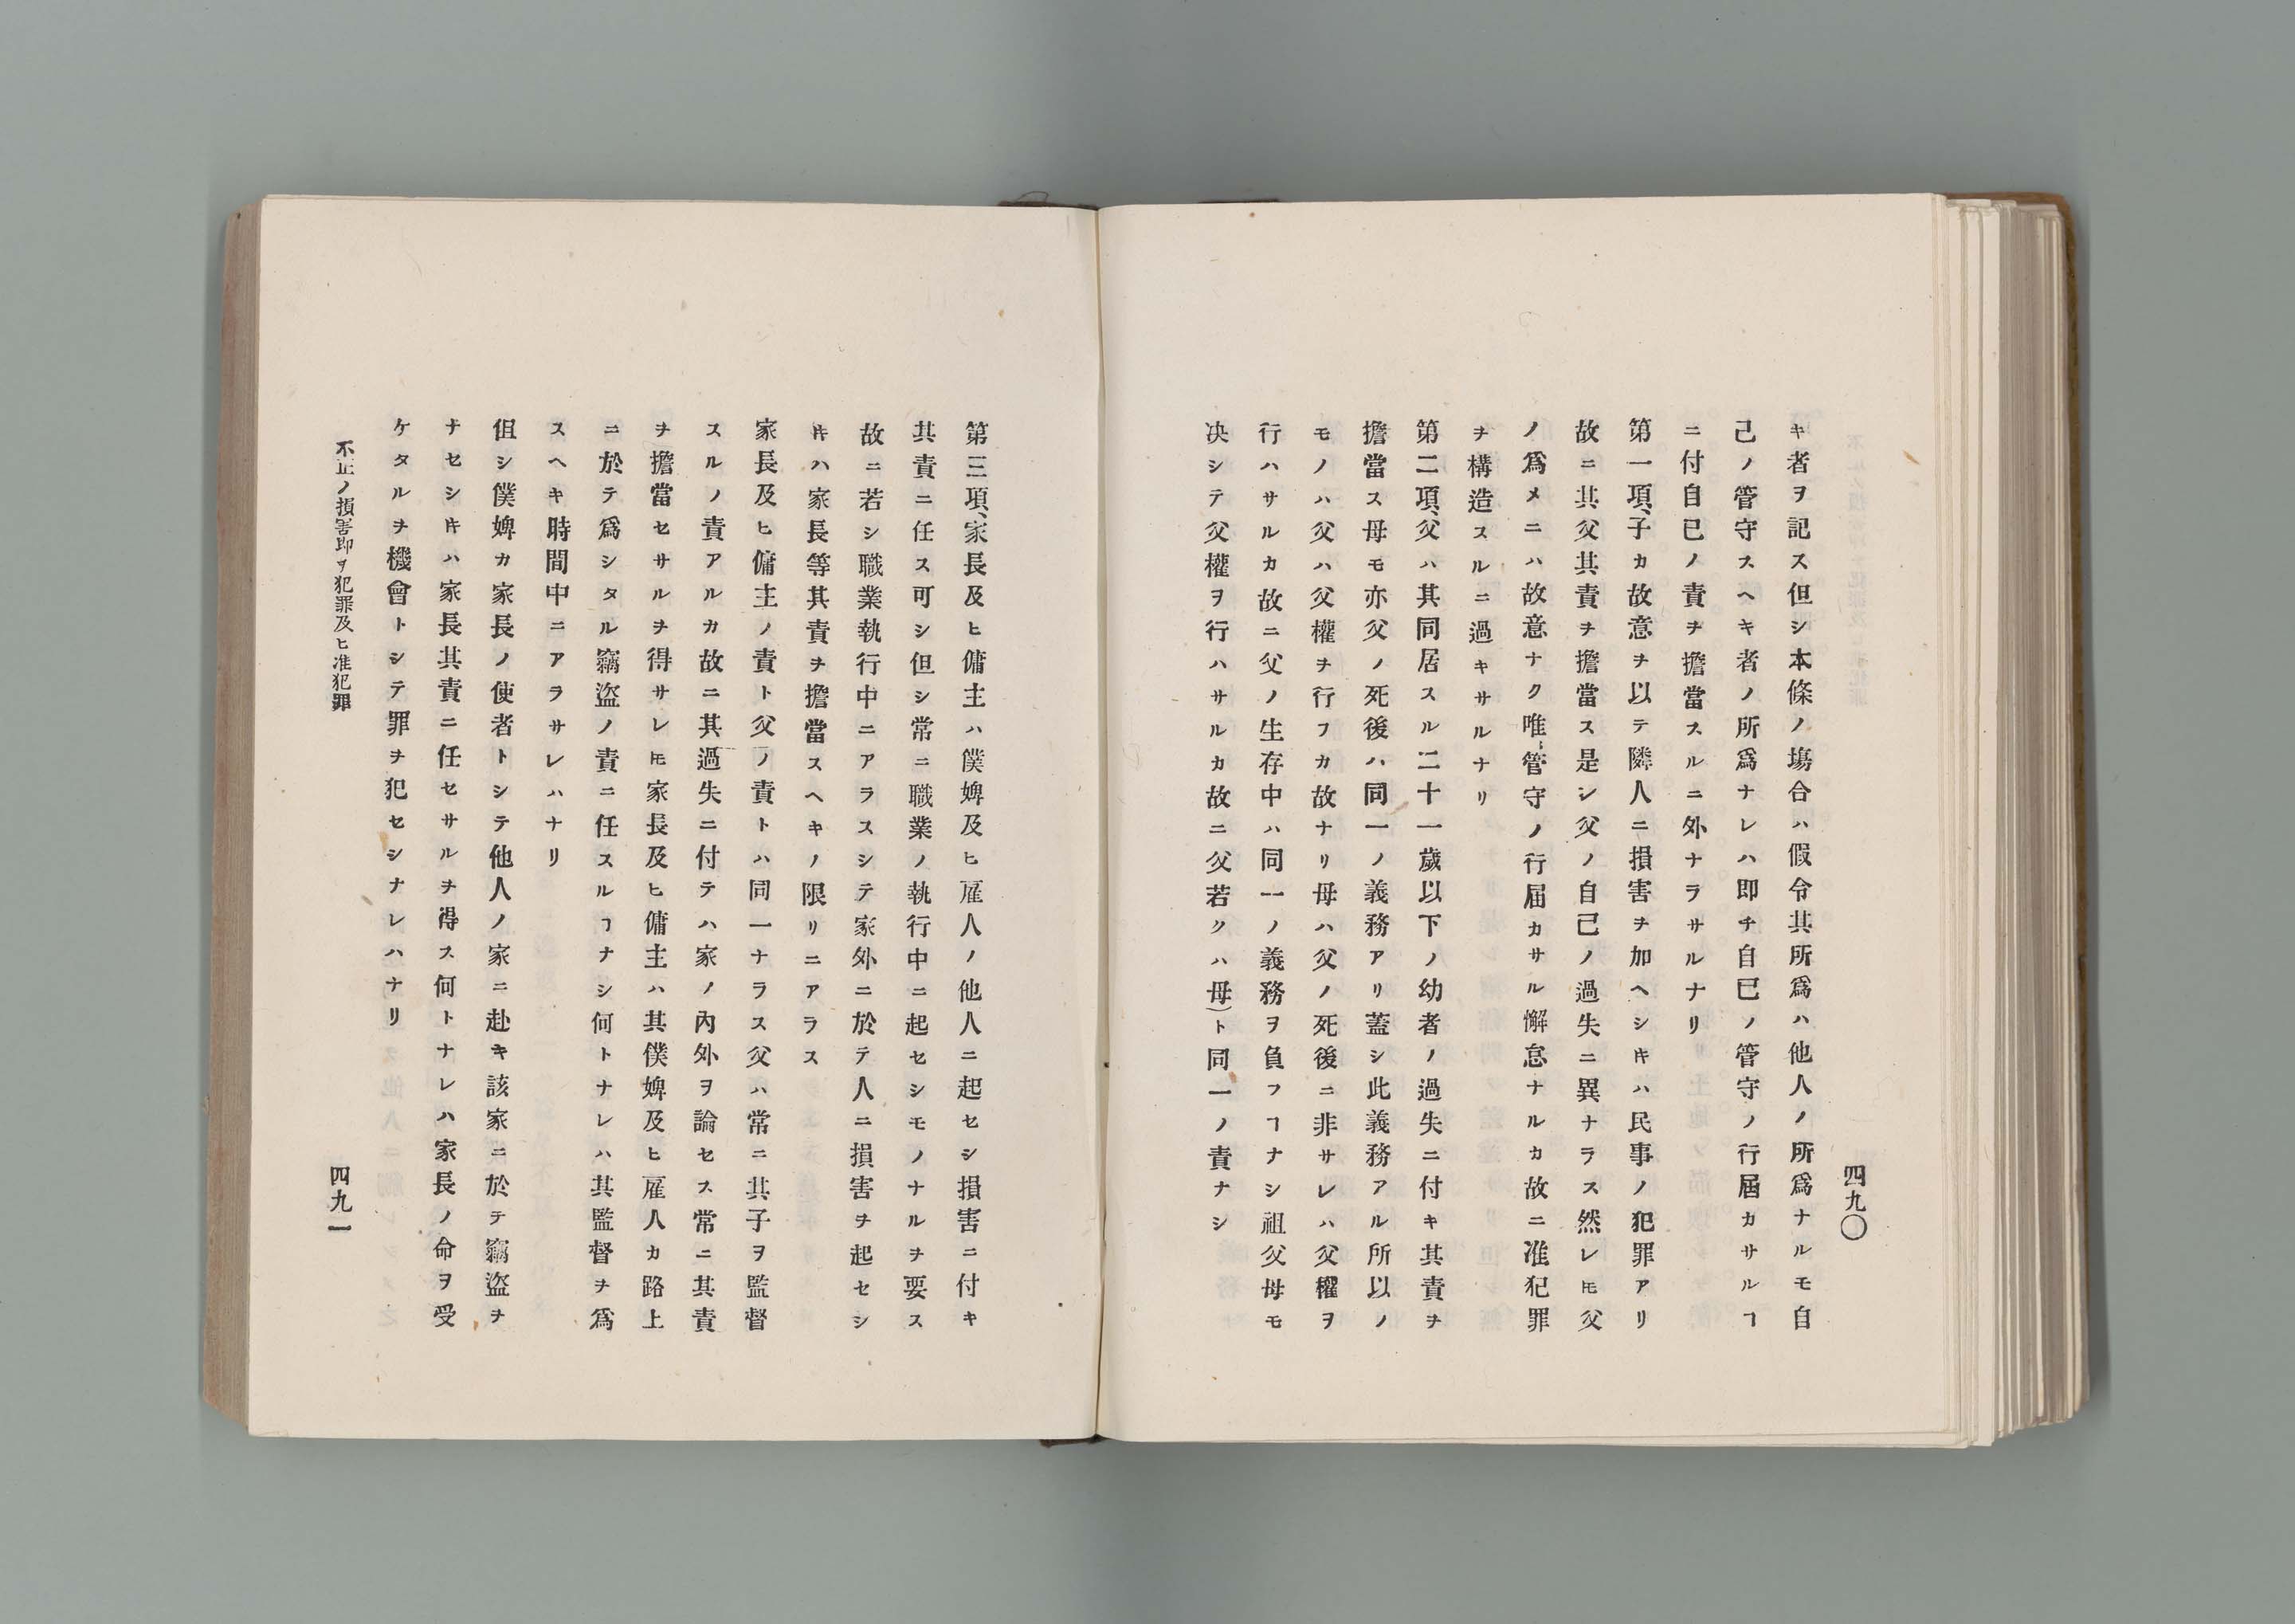 四九〇
キ者ヲ記ス但シ本條ノ塲合ハ假令其所爲ハ他人ノ所爲ナルモ自
己ノ管守スヘキ者ノ所爲ナレハ即チ自已ノ管守ノ行屆カサルヿ
ニ付自已ノ責ヲ擔當スルニ外ナラサルナリ
第一項、子カ故意ヲ以テ隣人ニ損害ヲ加ヘシキハ民事ノ犯罪アリ
故ニ其父其責ヲ擔當ス是シ父ノ自己ノ過失ニ異ナラス然レ𪜈父
ノ爲メニハ故意ナク唯〻管守ノ行届カサル懈怠ナルカ故ニ准犯罪
ヲ構造スルニ過キサルナリ
第二項、父ハ其同居スル二十一歲以下ノ幼者ノ過失ニ付キ其責ヲ
擔當ス母モ亦父ノ死後ハ同一ノ義務アリ蓋シ此義務アル所以ノ
モノハ父ハ父權ヲ行フカ故ナリ母ハ父ノ死後ニ非サレハ父權ヲ
行ハサルカ故ニ父ノ生存中ハ同一ノ義務ヲ負フヿナシ祖父母モ
决シテ父權ヲ行ハサルカ故ニ父若クハ母)ト同一ノ責ナシ
第三項、家長及ヒ傭主ハ僕婢及ヒ雇人ノ他人ニ起セシ損害ニ付キ
其責ニ任ス可シ但シ常ニ職業ノ執行中ニ起セシモノナルヲ要ス
故ニ若シ職業執行中ニアラスシテ家外ニ於テ人ニ損害ヲ起セシ
キハ家長等其責ヲ擔當スヘキノ限リニアラス
家長及ヒ傭主ノ責ト父ノ責トハ同一ナラス父ハ常ニ其子ヲ監督
スルノ責アルカ故ニ其過失ニ付テハ家ノ內外ヲ論セス常ニ其責
ヲ擔當セサルヲ得サレ𪜈家長及ヒ傭主ハ其僕婢及ヒ雇人カ路上
ニ於テ爲シタル竊盜ノ責ニ任スルヿナシ何トナレハ其監督ヲ爲
スヘキ時間中ニアラサレハナリ
但シ僕婢カ家長ノ使者トシテ他人ノ家ニ赴キ該家ニ於テ竊盜ヲ
ナセシキハ家長其責ニ任セサルヲ得ス何トナレハ家長ノ命ヲ受
ケタルヲ機會トシテ罪ヲ犯セシナレハナリ
不正ノ損害即ヲ犯罪及ヒ准犯罪
四九一